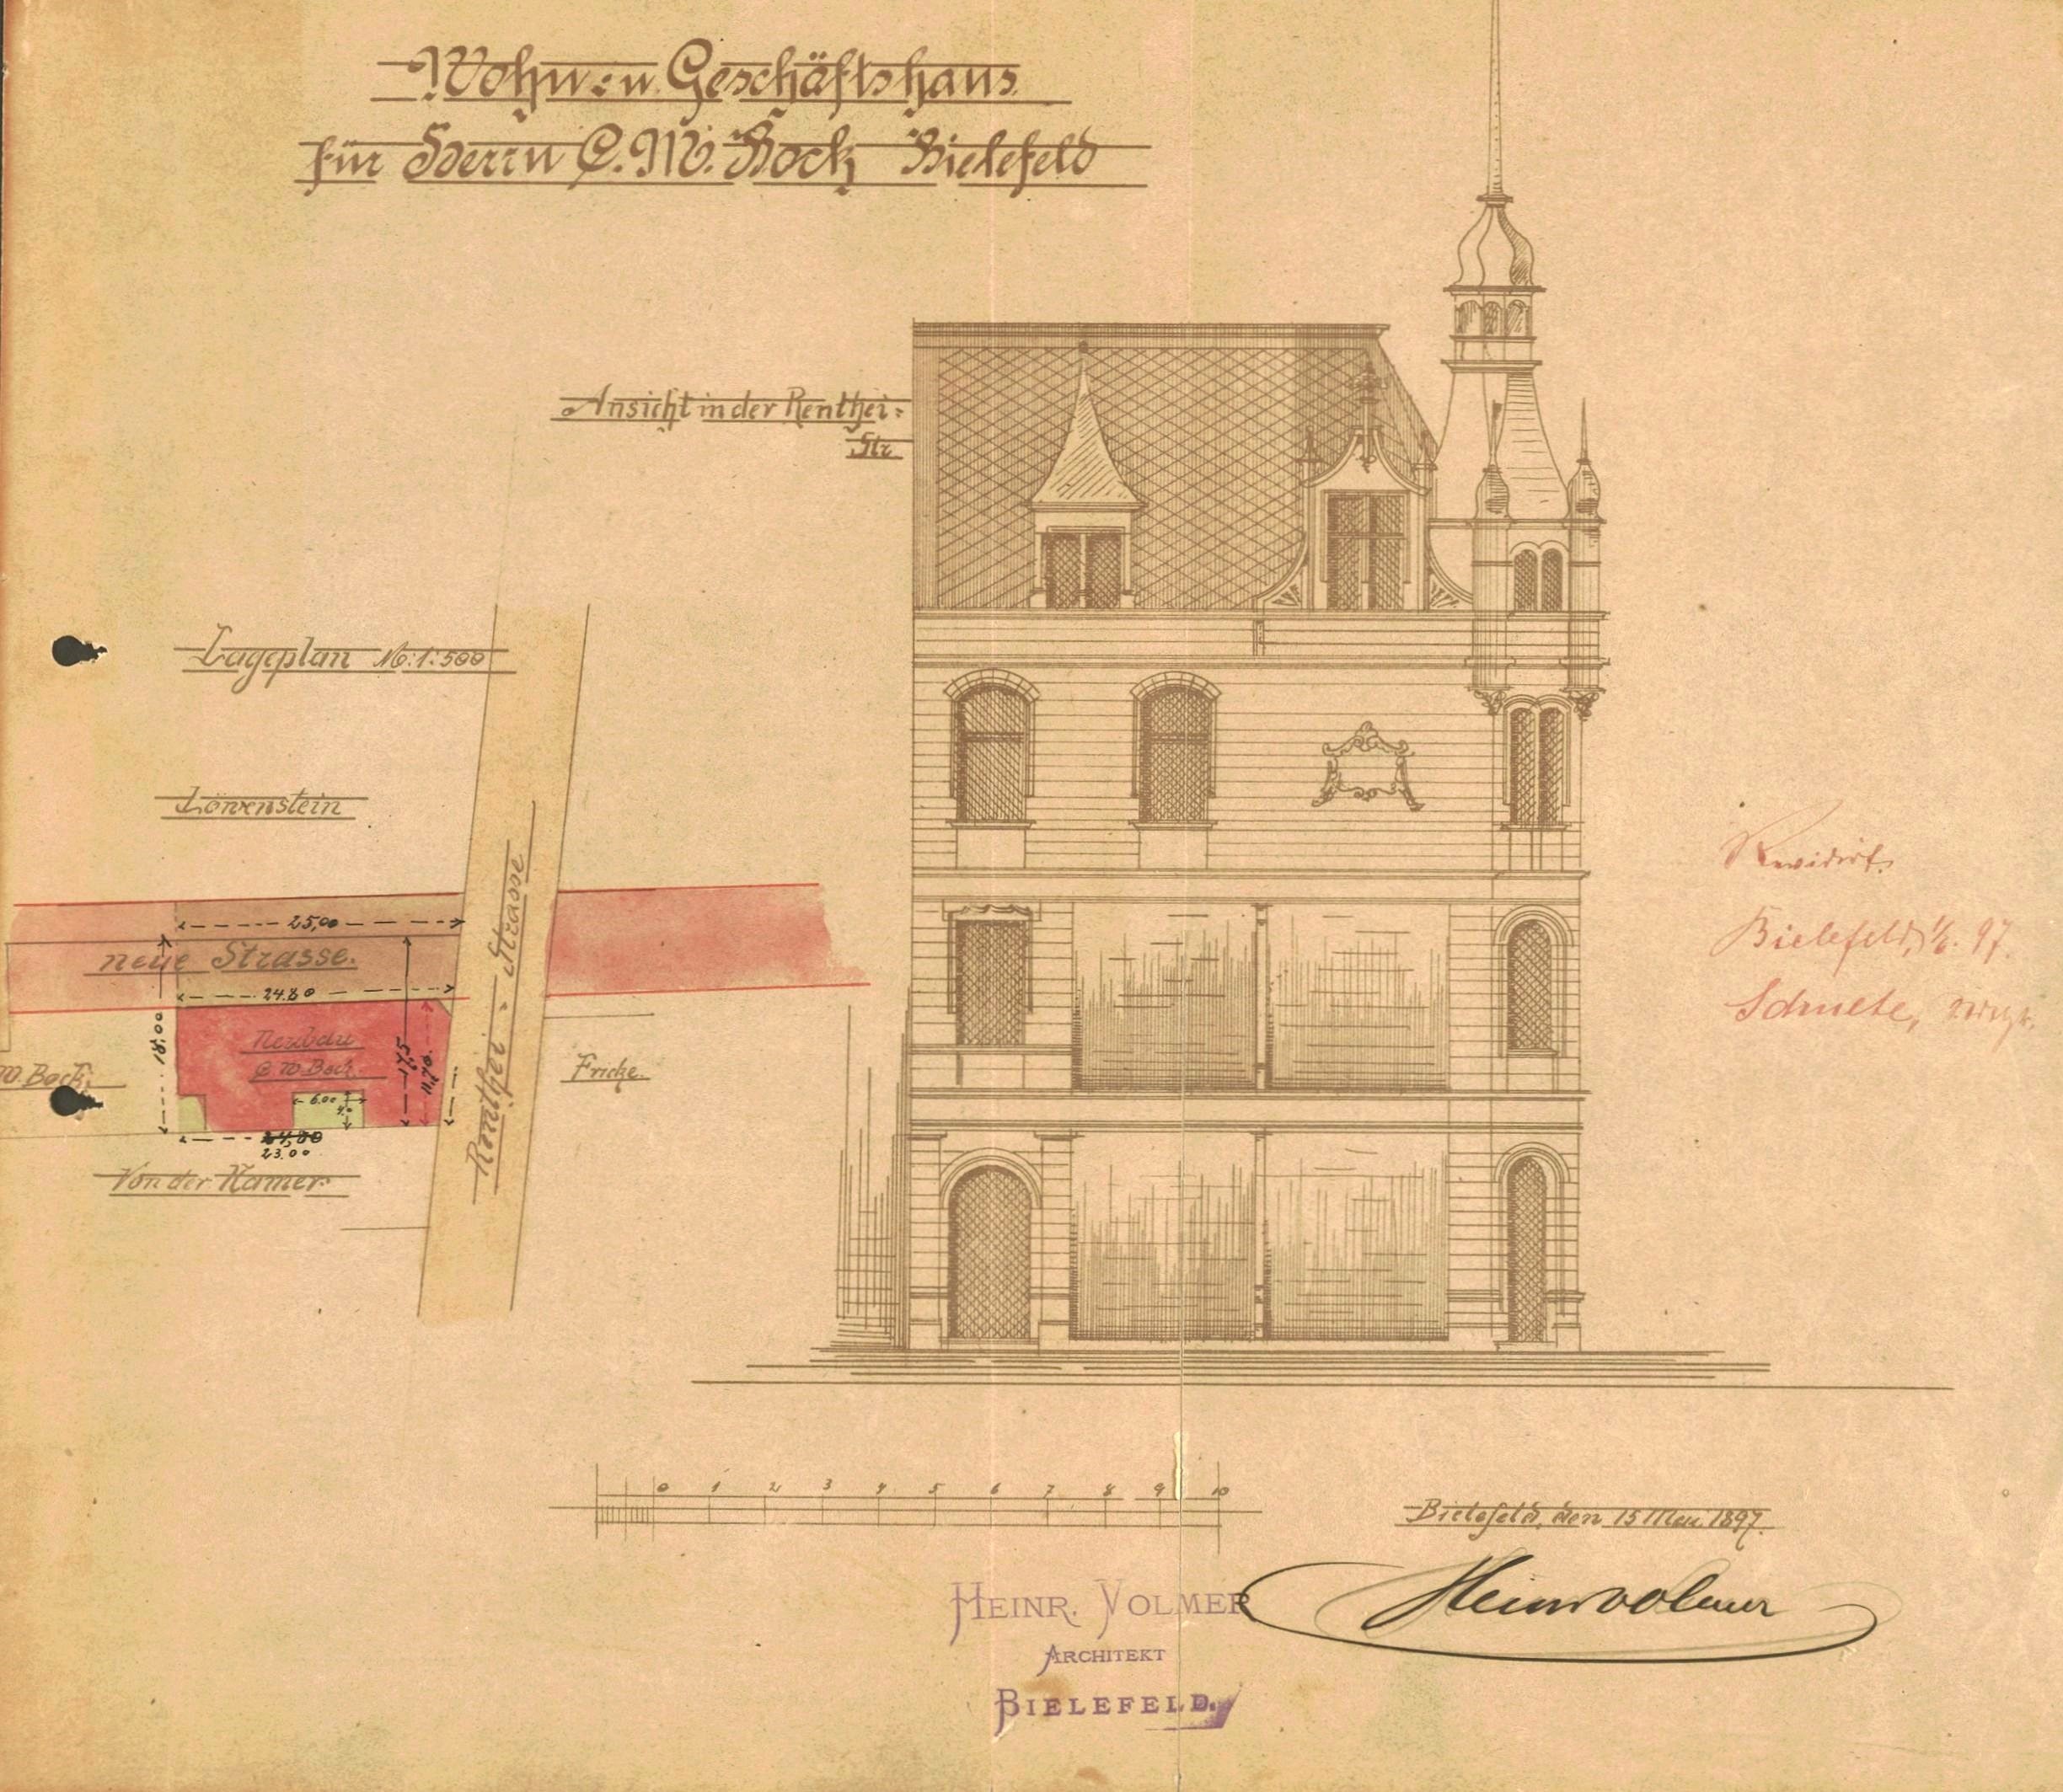 Wohn- u. Geschäftshaus
für Herrn C. W. Bock Bielefeld
Ansicht in der Renthei-
Str.
Lageplan M. 1:500
Löwenstein
25,00
neue Strasse.
24.80
Neubau
C. W. Bock.
18.00
17,5
11.70.
6.00
4.0
W. Bock.
24,80
23.00
Von der
Renthei-Strasse
Fricke.
Revidirt.
Bielefeld, 1/6. 97.
0 1 2 3 4 5 6 7 8 9 10
Bielefeld, den 15 Mai 1897.
HEINR. VOLMER
ARCHITEKT
BIELEFELD.
Heinr Volmer